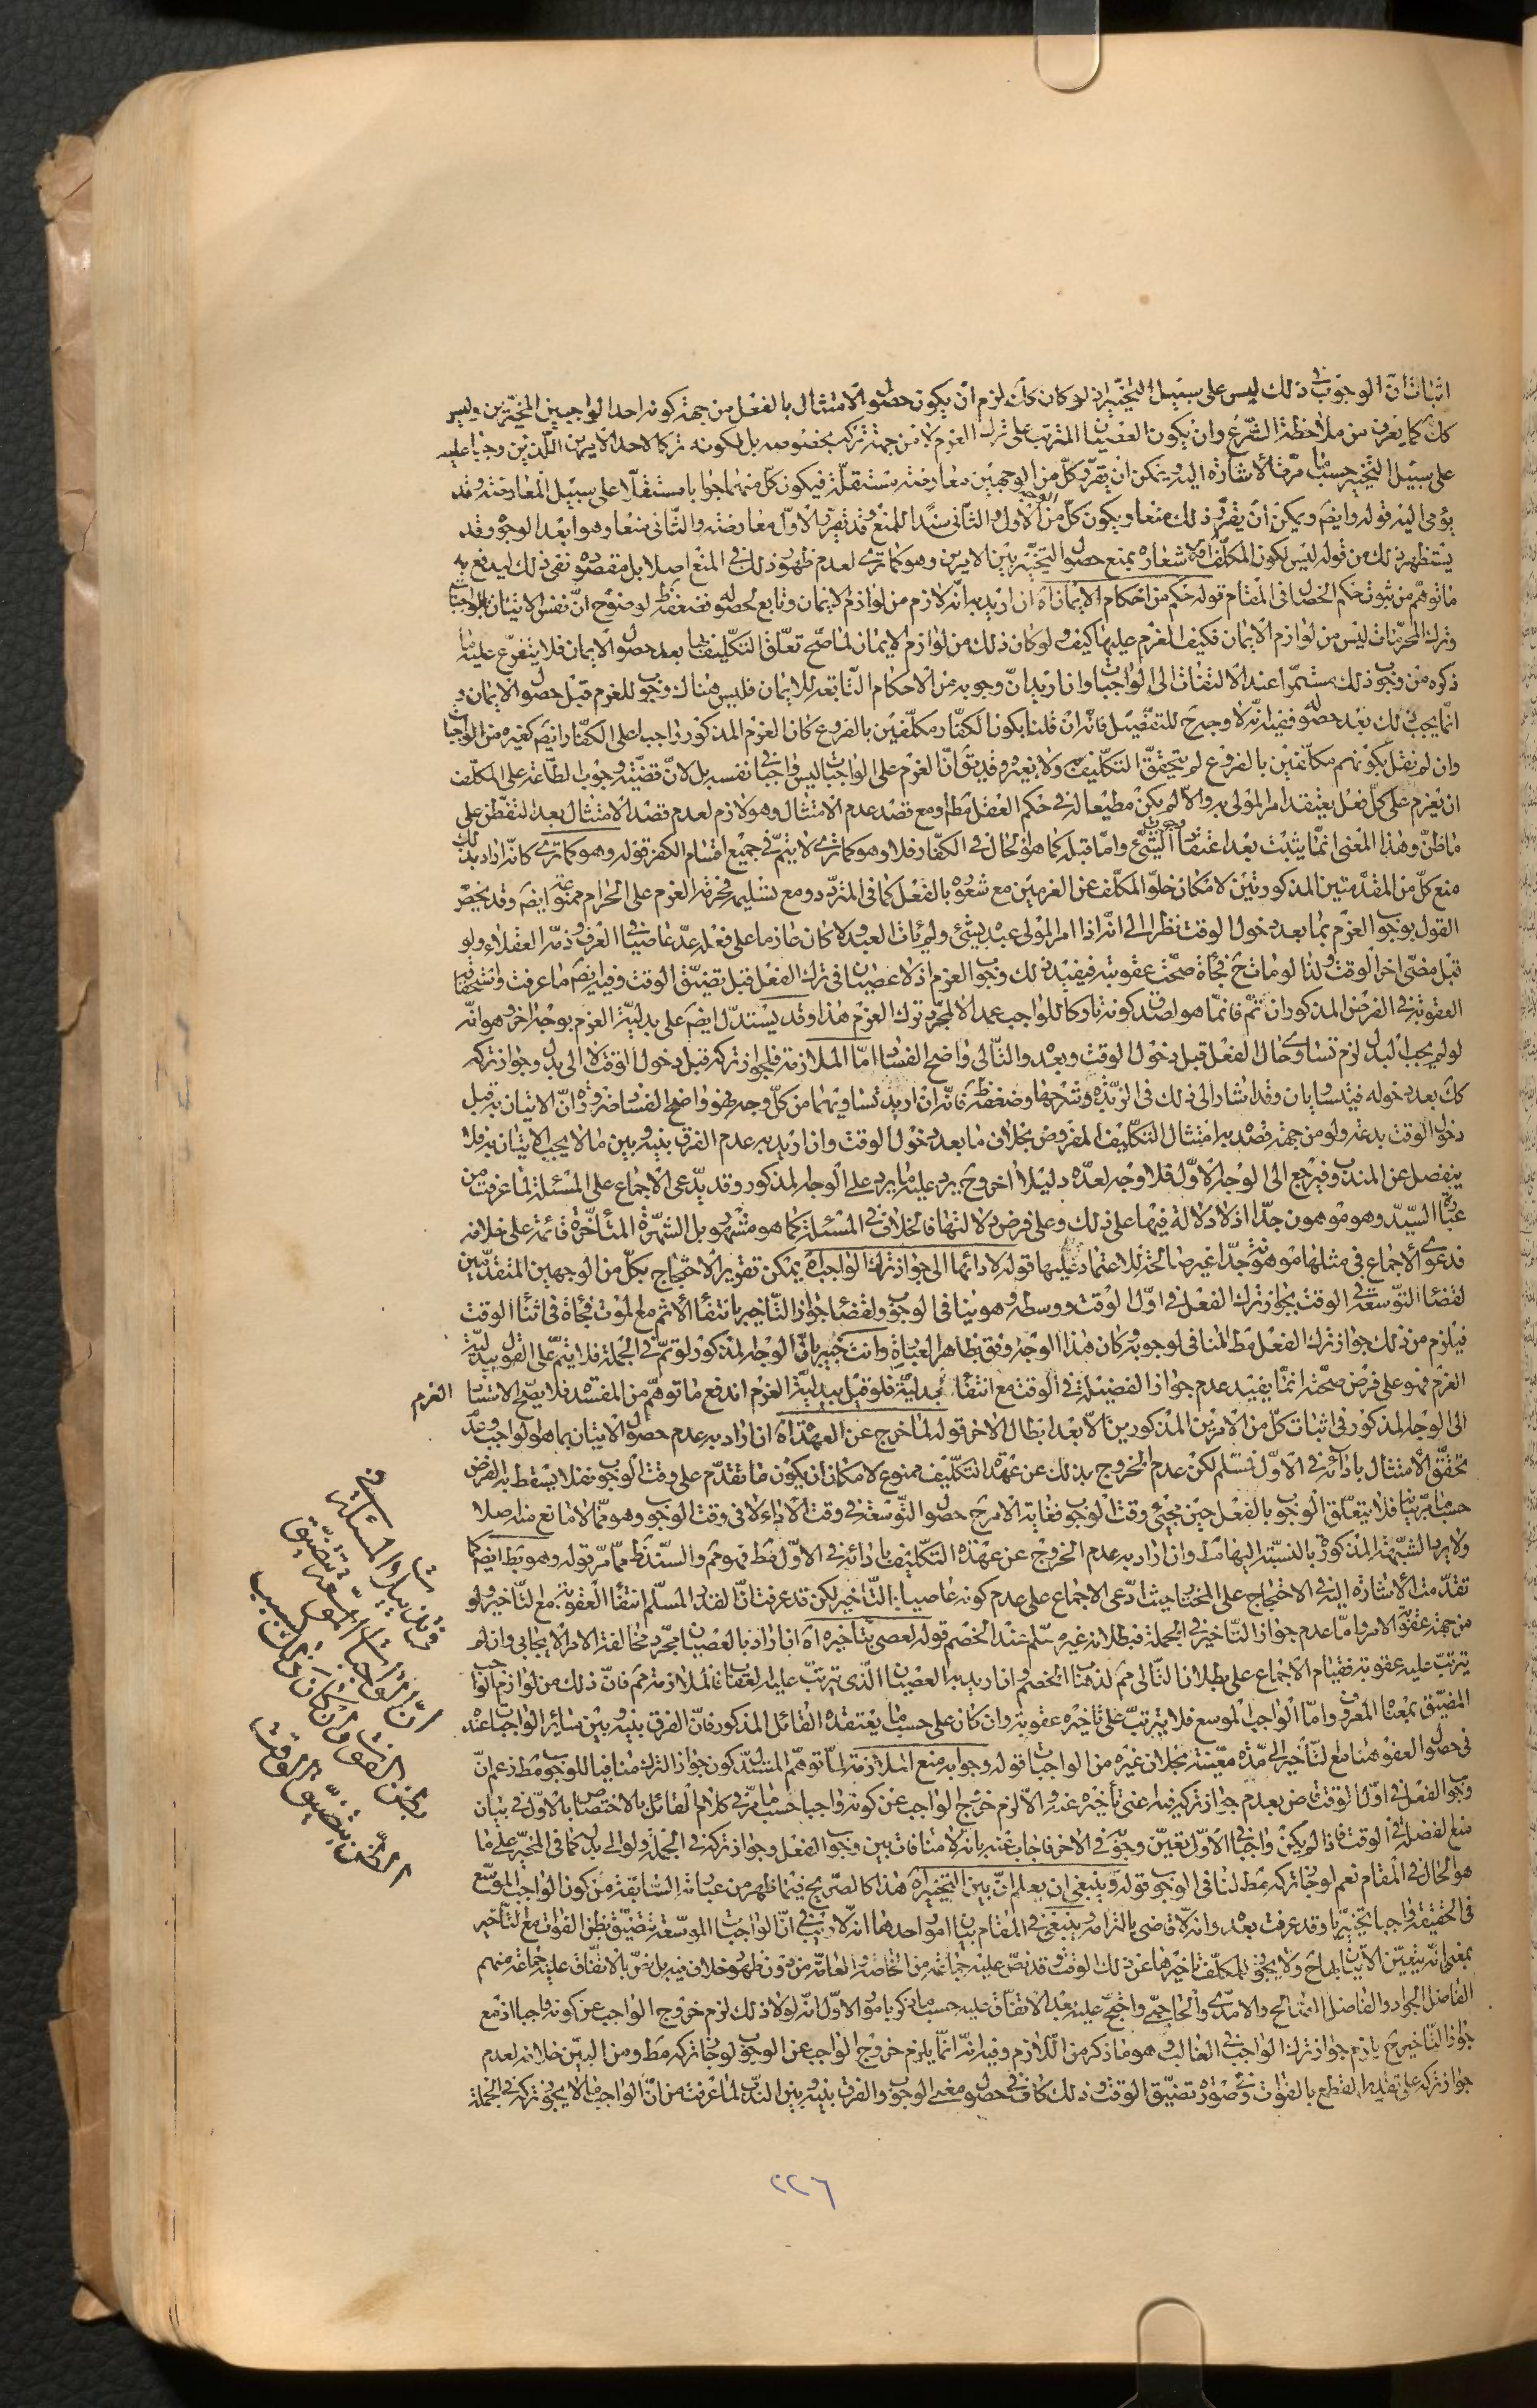 اثبات انّ الوجوب فى ذلك ليس على سبيل التخيير اذ لو كان كك لزم ان يكون حصول الامتثال بالفعل من جهة كونه احد الواجبين المخيّرين وليس
كك كما يعرف من ملاحظة الشرع وان يكون العصيان المترتب على ترك العزم لا من جهة تركه بخصوصه بل لكونه تركا لاحد الامرين اللّذين وجبا عليه
على سبيل التخيير حسبما مرّت الاشارة اليه ويمكن ان يقرّر كلّ من الوجهين معارضة مستقلّة فيكون كلّ منهما جوابا مستقلّا على سبيل المعارضة وقد
يؤمى اليه قوله وايضم ويمكن ان يقرّر ذلك منعا ويكون كلّ من الاول والثانى سندا للمنع وقد يقرّر الاوّل معارضة والثانى منعا وهو ابعد الوجوه وقد
يستظهر ذلك من قوله ليس لكون المكلّف اه لاشعاره بمنع حصول التخيير بين الامرين وهو كما ترى لعدم ظهور ذلك فى المنع اصلا بل مقصوده نفى ذلك ليدفع به
ما توهّم من ثبوت حكم الخصال فى المقام قوله حكم من احكام الايمان اه ان اريد به انّه لازم من لوازم الايمان وتابع لحصوله فضعفه ظ لوضوح انّ نفس الاتيان بالواجبات
وترك المحرّمات ليس من لوازم الايمان فكيف العزم عليها كيف ولو كان ذلك من لوازم الايمان لما صحّ تعلّق التكليف بها بعد حصول الايمان فلا يتفرّع عليه ما
ذكره من وجوب ذلك مستمرّا عند الالتفات الى الواجبات وان اريد انّ وجوبه من الاحكام التّابعة للايمان فليس هناك وجوب للعزم قبل حصول الايمان و
انّما يجب ذلك بعد حصوله ففيه انّه لا وجه ح للتفصيل فانّه ان قلنا بكون الكفّار مكلّفين بالفروع كان العزم المذكور واجبا على الكفّار ايضم كغيره من الواجبات
وان لم نقل بكونهم مكلّفين بالفروع لم يتحقّق التكليف به ولا بغيره وقد يق انّ العزم على الواجبات ليس واجبا فى نفسه بل لانّ قضيّة وجوب الطّاعة على المكلّف
ان يعزم على كلّ فعل يعتقد امر المولى به والّا لم يكن مطيعا له فى حكم العقل مط او مع قصد عدم الامتثال وهو لازم لعدم قصد الامتثال بعد التفطّن على
ما ظنّ وهذا المعنى انّما يثبت بعد اعتقاد وجوب الشّئ وامّا قبله كما هو الحال فى الكفّار فلا وهو كما ترى لا يتمّ فى جميع اقسام الكفر قوله وهو كما ترى كانّه اراد بذلك
منع كلّ من المقدّمتين المذكورتين لامكان خلوّ المكلّف عن العزمين مع شعوره بالفعل كما فى المتردّد ومع تسليمه فحرمة العزم على الحرام ممنوعة ايضم وقد يخصّ
القول بوجوب العزم بما بعد دخول الوقت نظرا الى انّه اذا امر المولى عبده بشئ ولم يأت العبد به ولا كان عازما على فعله عدّ عاصيا فى العرف وذمّه العقلاء ولو
قبل مضىّ اخر الوقت ولذا لو مات ح فجأة صحّت عقوبته فيفيد ذلك وجوب العزم اذ لا عصيان فى ترك الفعل قبل تضيّق الوقت وفيه ايضم ما عرفت واستحقاق
العقوبة فى الفرض المذكور ان تمّ فانّما هو لصدق كونه تاركا للواجب عمدا لا لمجرّد ترك العزم هذا وقد يستدلّ ايضم على بدليّة العزم بوجه اخر وهو انّه
لو لم يجب البدل لزم تساوى حال الفعل قبل دخول الوقت وبعده والتّالى واضح الفساد امّا الملازمة فلجواز تركه قبل دخول الوقت لا الى بدل وجواز تركه
كك بعد دخوله فيتساويان وقد اشار الى ذلك فى الزبدة وشرحها وضعفه ظ فانّه ان اريد تساويهما من كلّ وجه فهو واضح الفساد ضرورة انّ الاتيان به قبل
دخول الوقت بدعة ولو من جهة قصده به امتثال التكليف المفروض بخلاف ما بعد دخول الوقت وان اريد به عدم الفرق بينه وبين ما لا يجب الاتيان به فلا
ينفصل عن المندوب فيرجع الى الوجه الاوّل فلا وجه لعدّه دليلا اخر وح يرد عليه ما يرد على الوجه المذكور وقد يدّعى الاجماع على المسئلة لما عرفت من
عبارة السيّد وهو موهون جدّا اذ لا دلالة فيها على ذلك وعلى فرض دلالتها فالخلاف فى المسئلة كما هو مشهور بل الشهرة المتأخّرة قائمة على خلافه
فدعوى الاجماع فى مثلها موهونة جدّا غير صالحة للاعتماد عليها قوله لادائها الى جواز ترك الواجب اه يمكن تقرير الاحتجاج بكلّ من الوجهين المتقدّمين
لقضاء التوسعة فى الوقت بجواز ترك الفعل فى اوّل الوقت ووسطه وهو ينافى الوجوب ولقضاء جواز التّاخير بانتفاء الاثم مع الموت فجأة فى اثناء الوقت
فيلزم من ذلك جواز ترك الفعل مط المنافى لوجوبه وكان هذا الوجه اوفق بظاهر العبارة وانت خبير بانّ الوجه المذكور لو تمّ فى الجملة فلا يتمّ على القول ببدليّة
العزم فهو على فرض صحّته انّما يفيد عدم جواز الفضيلة فى الوقت مع انتفاء بدليّة فلو قيل ببدليّة العزم اندفع ما توهّم من المفسدة فلا يصحّ الاستناد
العزم
الى الوجه المذكور فى اثبات كلّ من الامرين المذكورين الّا بعد ابطال الاخر قوله لما خرج عن العهدة اه ان اراد به عدم حصول الاتيان بما هو الواجب وعدم
تحقّق الامتثال بادائه فى الاوّل فمسلّم لكن عدم الخروج بذلك عن عهدة التكليف ممنوع لامكان ان يكون ما تقدّم على وقت الوجوب نفلا يسقط به الفرض
حسبما مرّ بيانه فلا يتعلّق الوجوب بالفعل حين مجئ وقت الوجوب فغاية الامر ح حصول التّوسعة فى وقت الاداء لا فى وقت الوجوب وهو ممّا لا مانع منه اصلا
ولا يرد الشّبهة المذكورة بالنسبة اليها مط وان اراد به عدم الخروج عن عهدة التكليف بادائه فى الاوّل مط فهو مم والسّند ظ ممّا مرّ قوله وهو بط ايضم كما
تقدّمت الاشارة اليه فى الاحتجاج على المختار حيث ادّعى الاجماع على عدم كونه عاصيا بالتّاخير لكن قد عرفت انّ القدر المسلّم انتفاء العقوبة مع التّاخير ولو
من جهة عفو الامر وامّا عدم جواز التّاخير فى الجملة فبطلانه غير مسلّم عند الخصم قوله لعصى بتأخيره اه ان اراد بالعصيان مجّرد مخالفة الامر الايجابى وان لم
يترتّب عليه عقوبة فقيام الاجماع على بطلان التّالى مم لذهاب الخصم وان اريد به العصيان الّذى يترتّب عليه العقاب فالملازمة مم فانّ ذلك من لوازم الواجب
المضيّق بمعناه المعروف وامّا الواجب الموسع فلا يترتّب على تأخيره عقوبة وان كان على حسب ما يعتقده القائل المذكور فانّ الفرق بينه وبين سائر الواجبات عنده
فى حصول العفو هنا مع التّأخير الى مدّة معيّنة بخلاف غيره من الواجبات قوله وجوابه منع الملازمة لمّا توهّم المستدلّ كون جواز الترك منافيا للوجوب مط زعم انّ
وجوب الفعل فى اوّل الوقت قاض بعدم جواز تركه فيه اعنى تأخيره عنه والّا لزم خروج الواجب عن كونه واجبا حسب ما مرّ فى كلام القائل بالاختصاص بالاوّل فى بيان
منع الفضل فى الوقت فاذا لم يكن واجبا فى الاوّل تعيّن وجوبه فى الاخر فاجاب عنه بانّه لا منافات بين وجوب الفعل وجواز تركه فى الجملة ولو الى بدل كما فى المخيّر على ما
هو الحال فى المقام نعم لو جاز تركه مط لنافى الوجوب قوله وينبغى ان يعلم انّ بين التخيير اه هذا كالصّريح فيما ظهر من عبارته السّابقة من كون الواجب الموسّع
فى الحقيقة واجبا تخييريّا وقد عرفت بعده وانّه لا قاضى بالتزامه وينبغى فى المقام بيان امور احدها انّه لا ريب فى انّ الواجبات الموسّعة تتضيّق بظنّ الفوات مع التّأخير
بمعنى انّه يتعيّن الاتيان بها ح ولا يجوز للمكلّف تأخيرها عن ذلك الوقت وقد نصّ عليه جماعة من الخاصّة والعامّة من دون ظهور خلاف فيه بل نصّ بالاتفاق عليه جماعة منهم
الفاضل الجواد والفاضل الصالح والامدى والحاجبى واحتجّ عليه بعد الاتفاق عليه حسبما ذكر بامور الاوّل انّه لولا ذلك لزم خروج الواجب عن كونه واجبا اذ مع
جواز التّاخير ح يلزم جواز ترك الواجب فى الغالب وهو ما ذكر من اللّازم وفيه انّه انّما يلزم خروج الواجب عن الوجوب لو جاز تركه مط ومن البيّن خلافه لعدم
جواز تركه على تقدير القطع بالفوات وفى صورة تضيّق الوقت وذلك كاف فى حصول معنى الوجوب والفرق بينه وبين النّدب لما عرفت من انّ الواجب ما لا يجوز تركه فى الجملة
فى بيان المسئلة
انّ الواجبات الموسّعة تتضيّق
بظنّ الفوات وان كان ذلك بسبب
الظنّ بتضيّق الوقت
٢٢٦